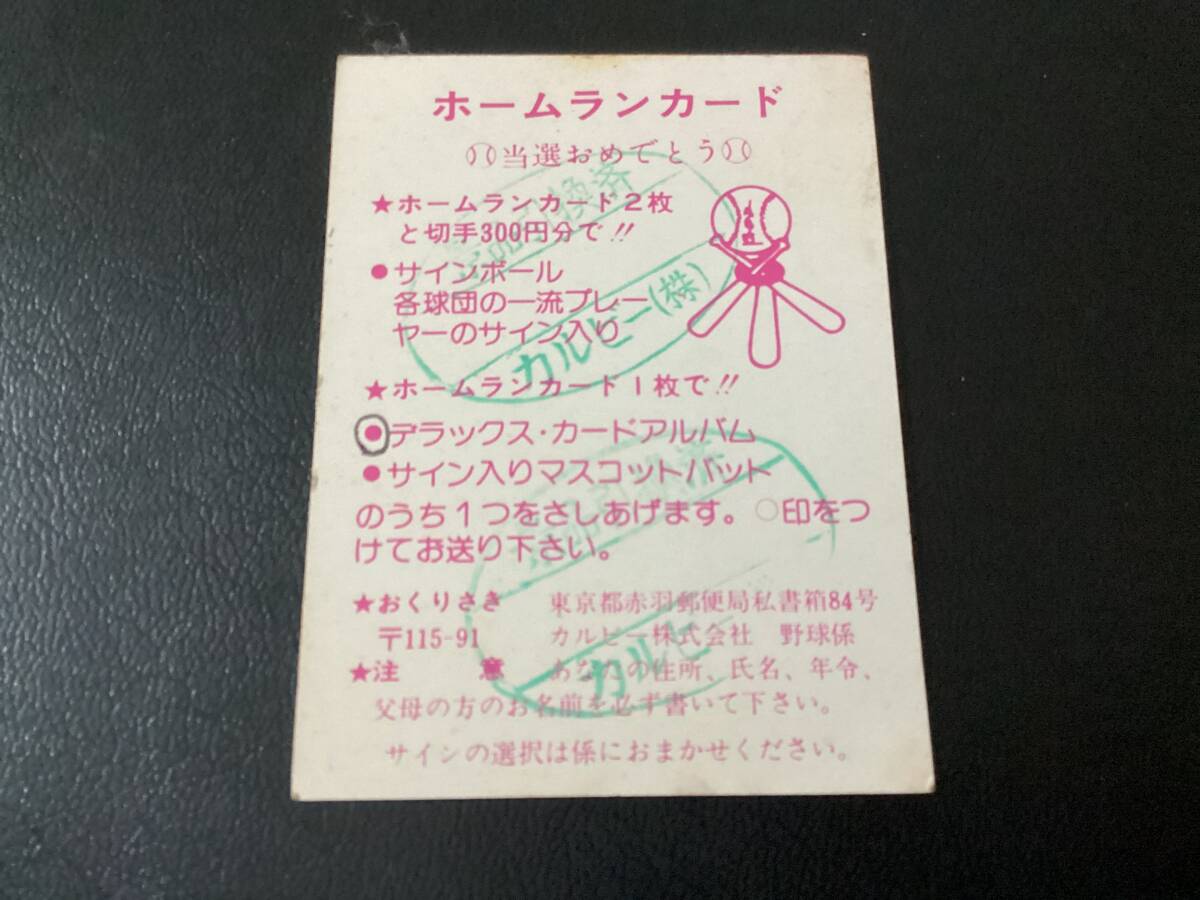 ホームランカード
当選おめでとう
★ホームランカード2枚
と切手300円分で!!
●サインボール
各球団の一流プレー
ヤーのサイン入り
★ホームランカード1枚で!!
●デラックス・カードアルバム
●サイン入りマスコットバット
のうち1つをさしあげます。○印をつ
けてお送り下さい。
★おくりさき 東京都赤羽郵便局私書箱84号
〒115-91 カルビー株式会社 野球係
★注 意 あなたの住所、氏名、年令、
父母の方のお名前を必ず書いて下さい。
サインの選択は係におまかせください。
引換済
カルビー(株)
カルビー